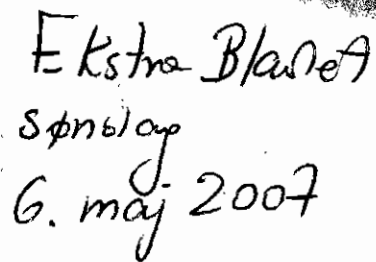 Ekstra Bladet
søndag
6. maj 2007